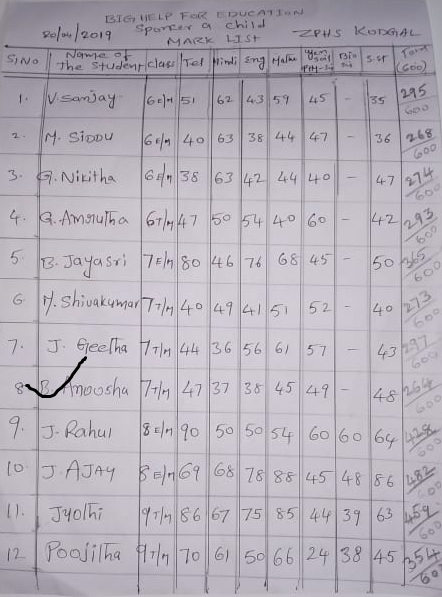 BIG HELP FOR EDUCATION
20/04/2019 Sponcer a child ZPHS KODGAL
MARK LIST
SlNo Name of The Student Class Tel Hindi Eng Maths Gen Sci Bio Sci S.st Total (600)
1. V. Sanjay 6E/M 51 62 43 59 45 - 35 295/600
2. M. SIDDU 6E/M 40 63 38 44 47 - 36 268/600
3. G. Nikitha 6E/M 38 63 42 44 40 - 47 274/600
4. G. Amrutha 6T/M 47 50 54 40 60 - 42 293/600
5. B. Jayasri 7E/M 80 46 76 68 45 - 50 365/600
6 M. Shivakumar 7T/M 40 49 41 51 52 - 40 273/600
7. J. Geetha 7T/M 44 36 56 61 57 - 43 297/600
8 B. Anoosha 7T/M 47 37 38 45 49 - 48 264/600
9. J. Rahul 8E/M 90 50 50 54 60 60 64 428/600
10. J. AJAY 8E/M 69 68 78 88 45 48 86 482/600
11. Jyothi 9T/M 86 67 75 85 44 39 63 459/600
12 Poojitha 9T/M 70 61 50 66 24 38 45 354/600